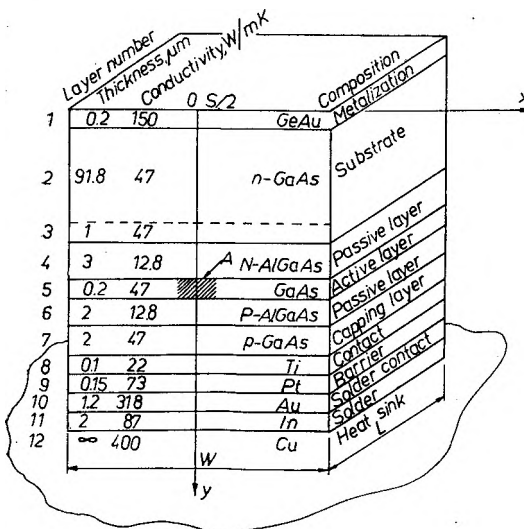 Layer number
Thickness, μm
Conductivity, W/mK
0 S/2
Composition
x
1 0.2 150 GeAu Metalization
2 91.8 47 n-GaAs Substrate
3 1 47
4 3 12.8 N-AlGaAs Passive layer
A
5 0.2 47 GaAs Active layer
6 2 12.8 P-AlGaAs Passive layer
7 2 47 p-GaAs Capping layer
8 0.1 22 Ti Contact
9 0.15 73 Pt Barrier
10 1.2 318 Au Solder contact
11 2 87 In Solder
12 ∞ 400 Cu Heat sink
W
L
y